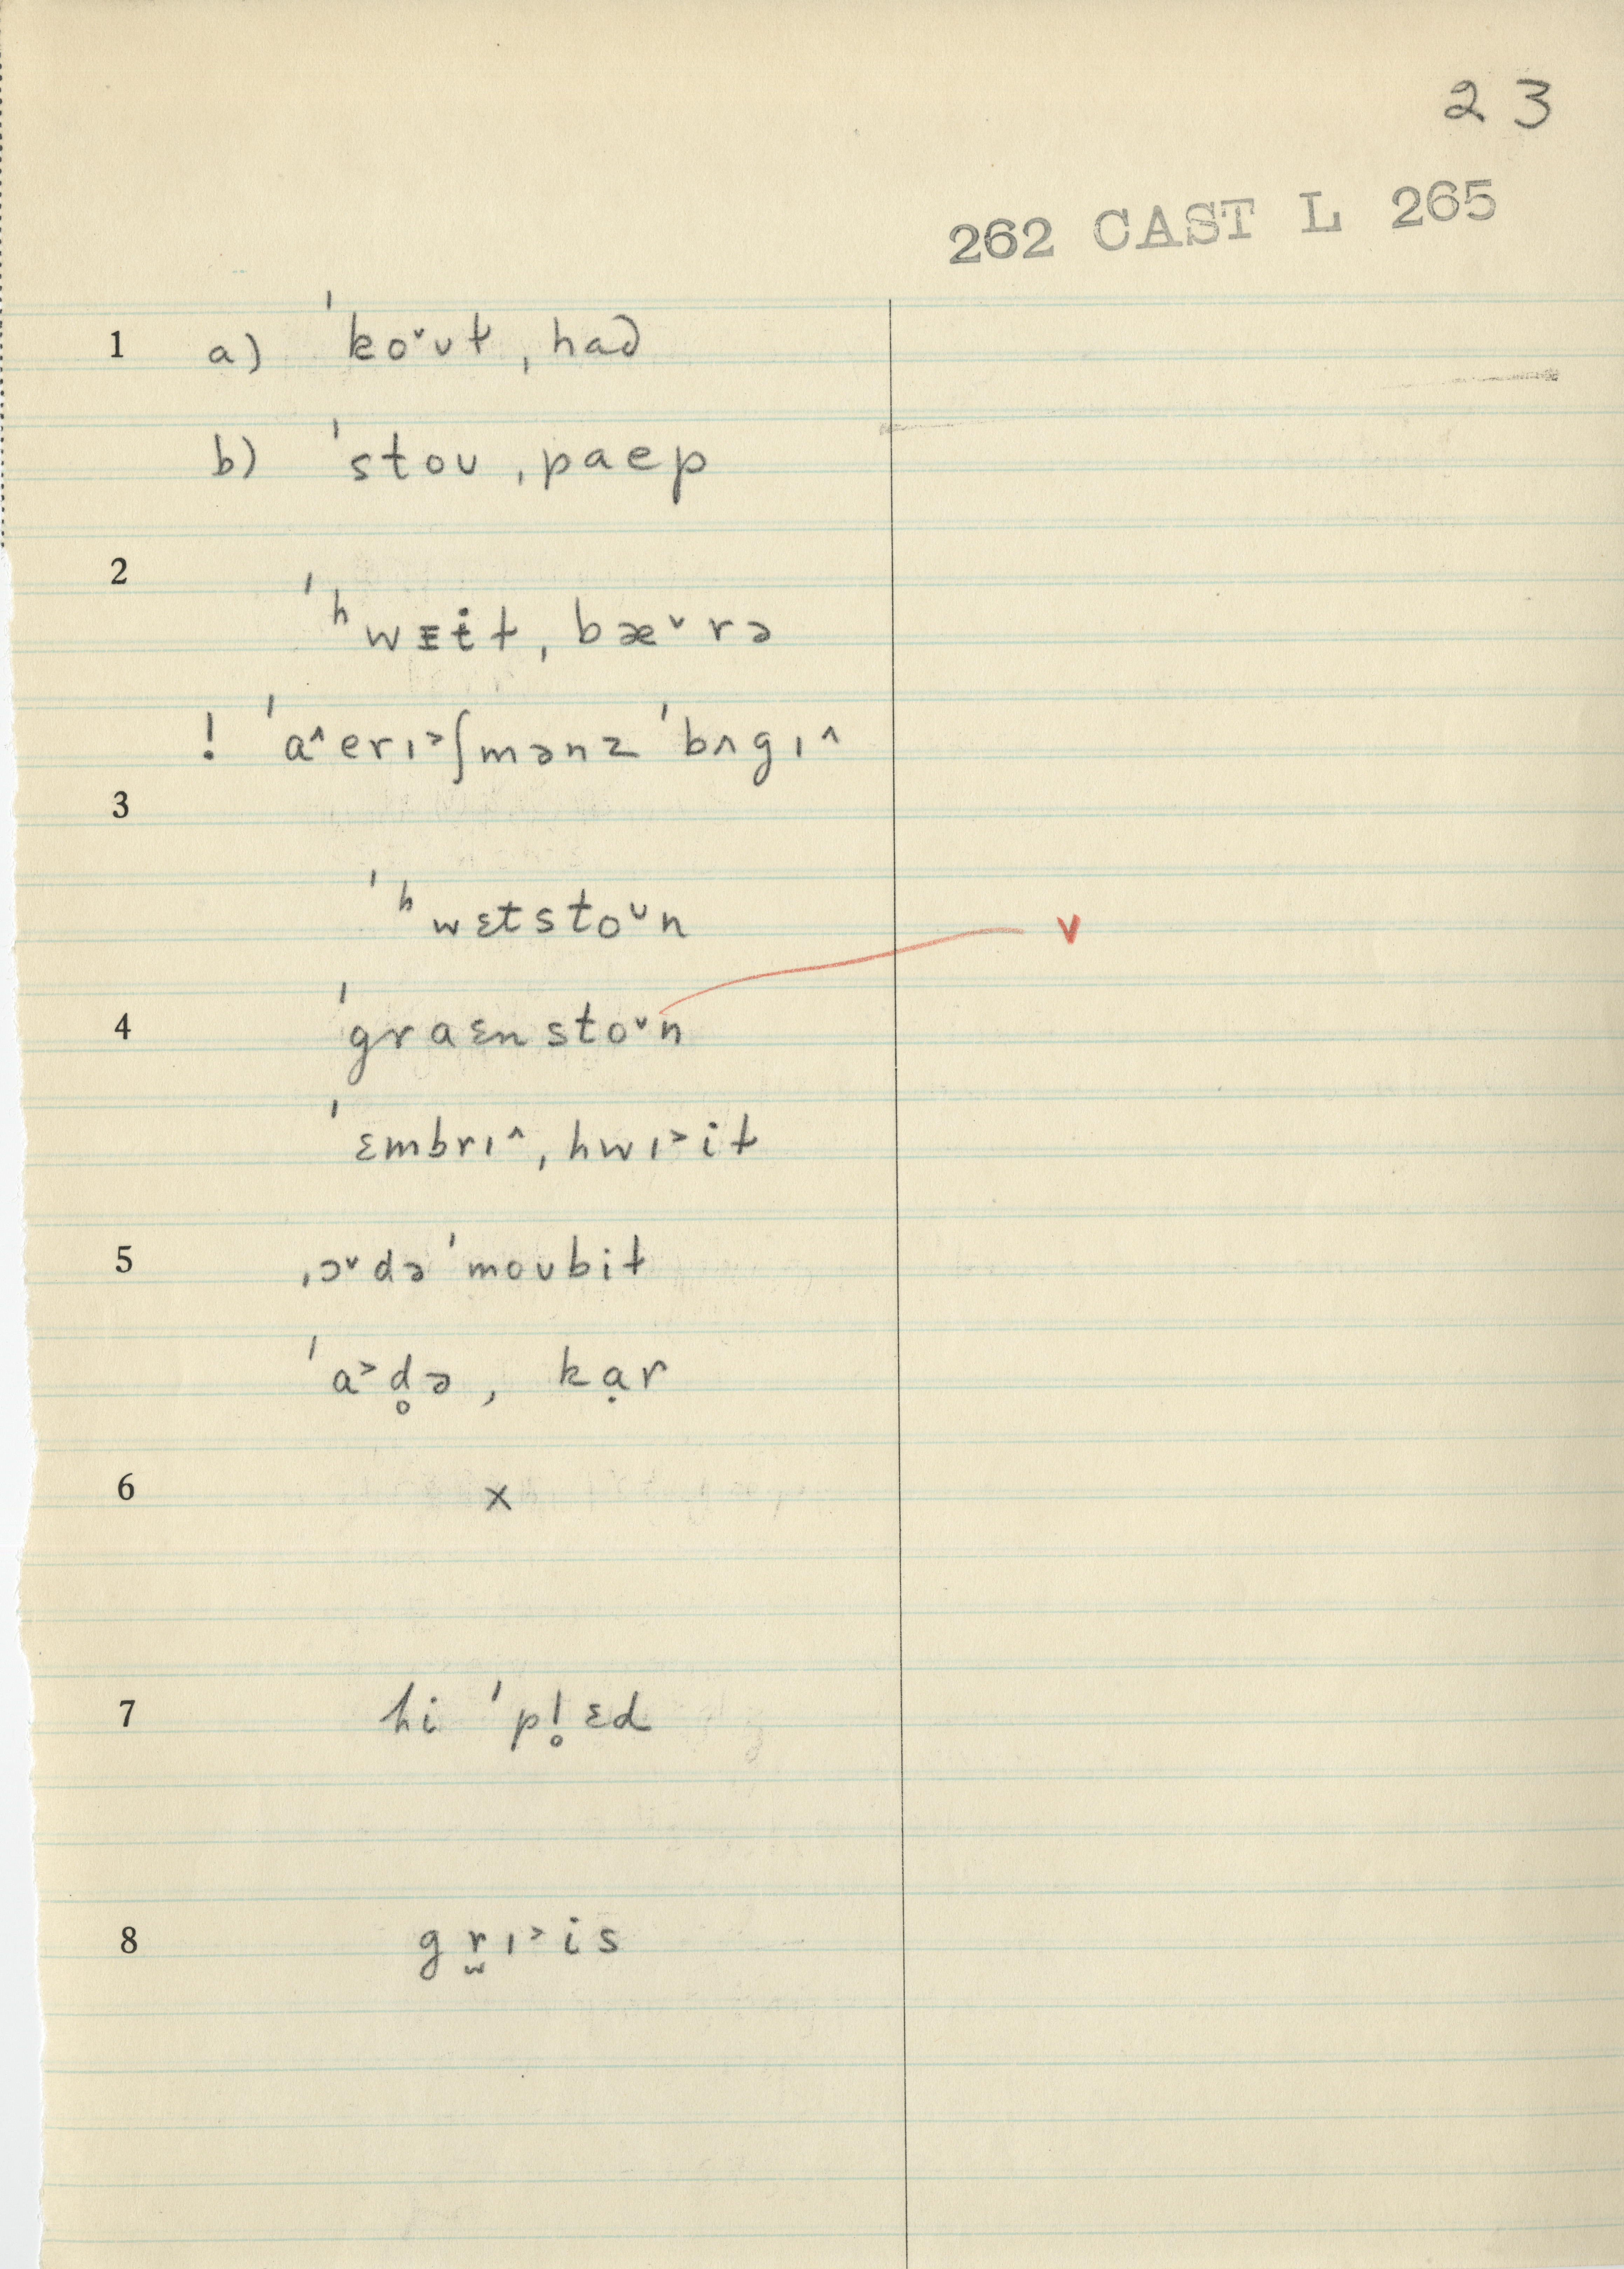 23
262 CAST L 265
1 a) ˈkoˇʊt ˌhad
b) ˈstoʊ ˌpaep
2
ˈʰwɛit ˌbæˇrə
! ˈa^erɪ˃ʃmənz ˈbʌgɪ^
3
ˈʰwɛtstoᶸn
v
4 ˈgraɛnstoᶸn
ˈɛmbrɪ^ ˌhwɪ˃it
5 ˌɔˇdə ˈmoʊbit
ˈa˃d̥ə ˌkạr
6 x
7 hi ˈpl̥ɛd
8 gr̫ɪ˃is